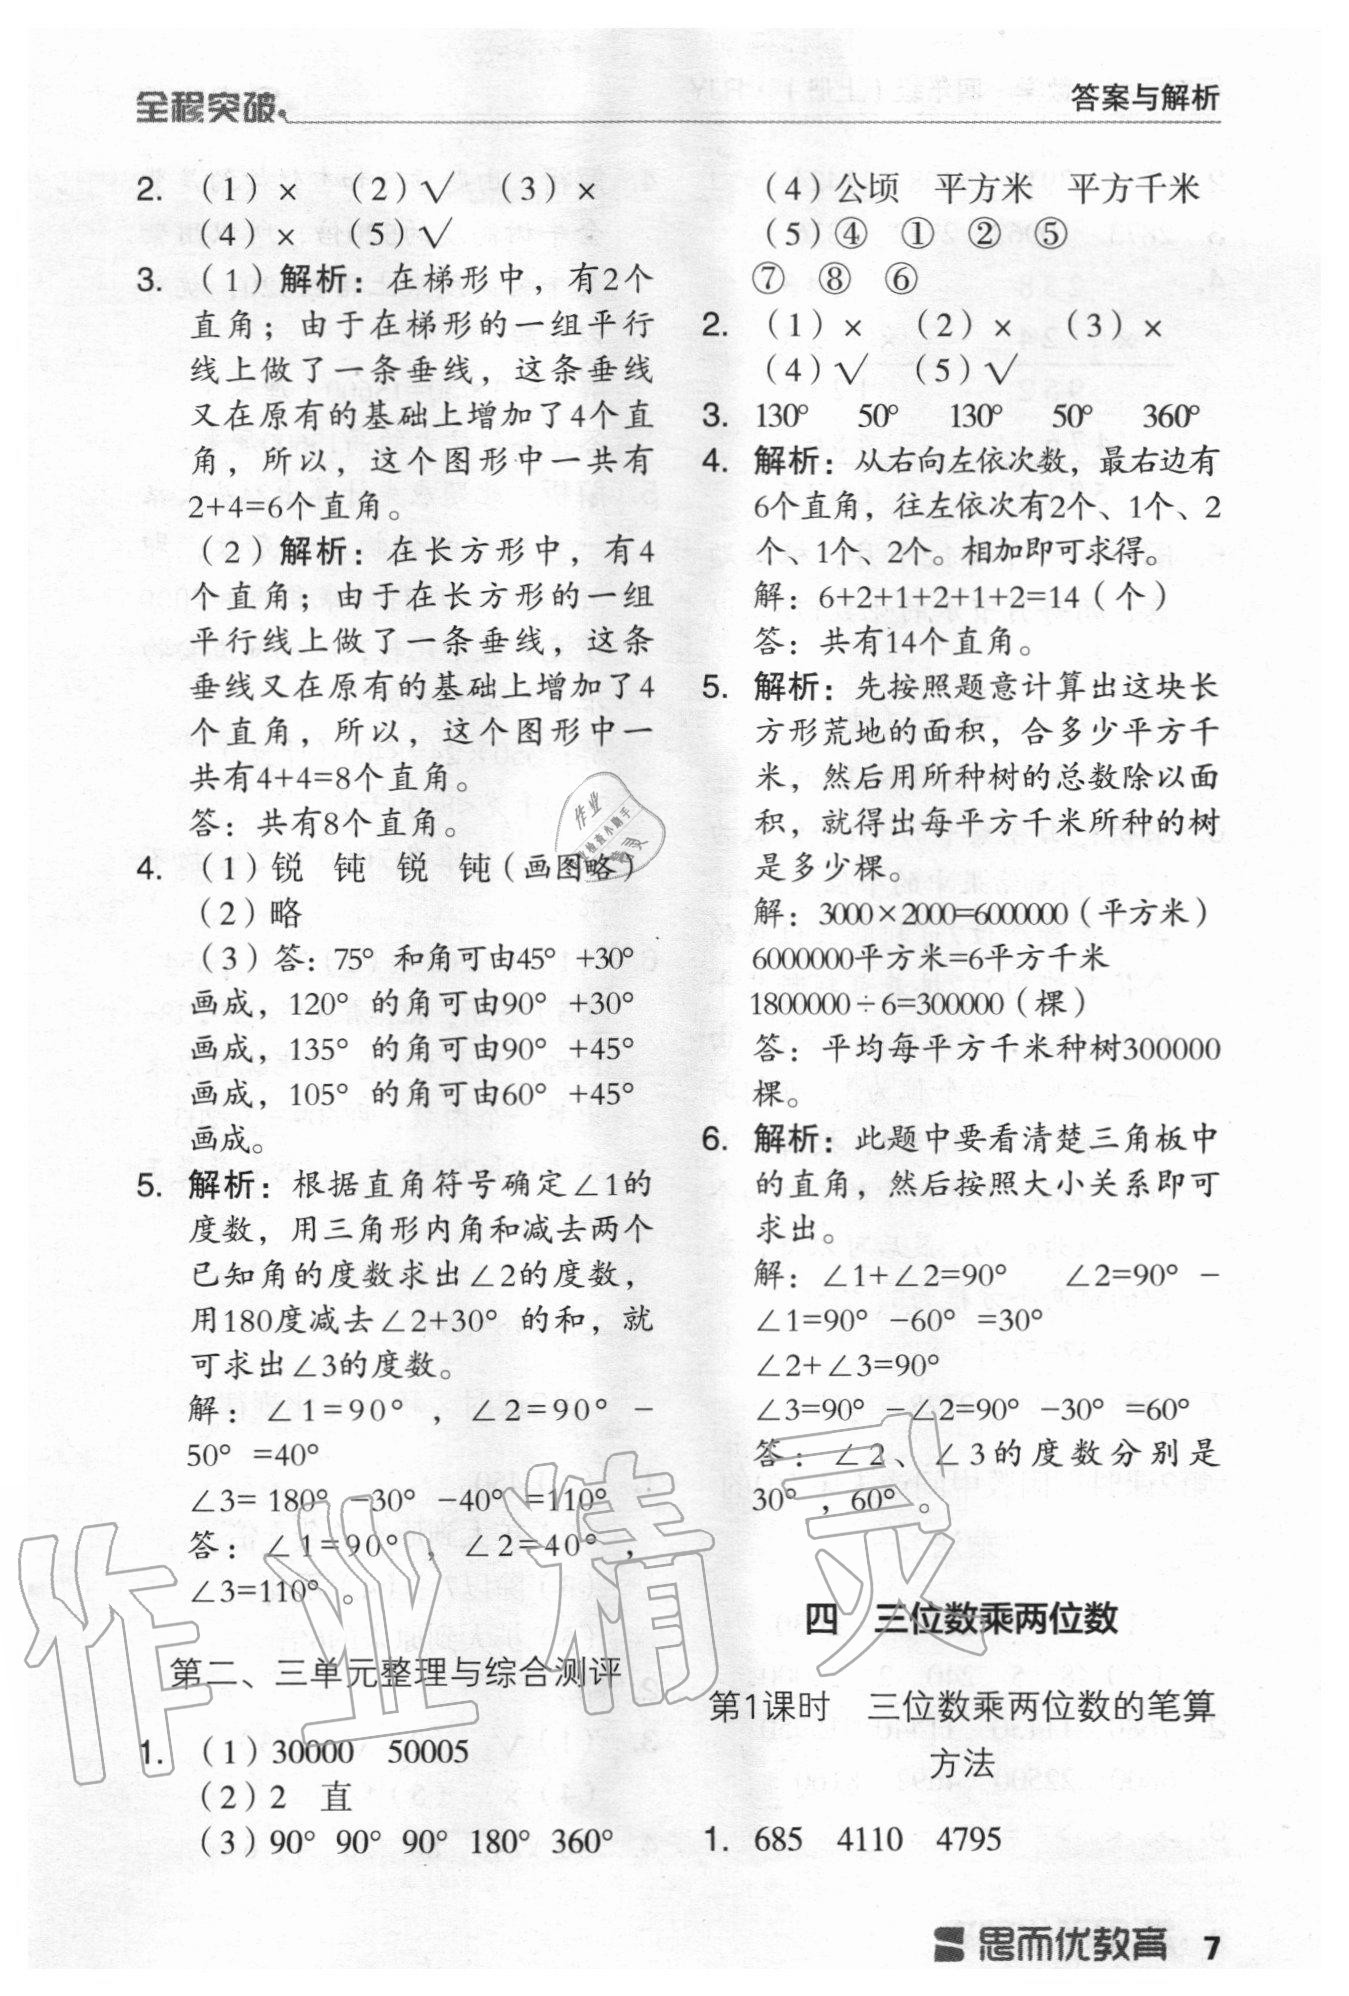 全程突破
答案与解析
2. （1）× （2）√ （3）×
（4）× （5）√
3. （1）解析：在梯形中，有2个
直角；由于在梯形的一组平行
线上做了一条垂线，这条垂线
又在原有的基础上增加了4个直
角，所以，这个图形中一共有
2+4=6个直角。
（2）解析：在长方形中，有4
个直角；由于在长方形的一组
平行线上做了一条垂线，这条
垂线又在原有的基础上增加了4
个直角，所以，这个图形中一
共有4+4=8个直角。
答：共有8个直角。
4. （1）锐 钝 锐 钝（画图略）
（2）略
（3）答：75° 和角可由45° +30°
画成，120° 的角可由90° +30°
画成，135° 的角可由90° +45°
画成，105° 的角可由60° +45°
画成。
5. 解析：根据直角符号确定∠1的
度数，用三角形内角和减去两个
已知角的度数求出∠2的度数，
用180度减去∠2+30° 的和，就
可求出∠3的度数。
解：∠1=90° ，∠2=90° −
50° =40°
∠3= 180° −30° −40° =110°
答：∠1=90° ，∠2=40° ，
∠3=110° 。
第二、三单元整理与综合测评
1. （1）30000 50005
（2）2 直
（3）90° 90° 90° 180° 360°
（4）公顷 平方米 平方千米
（5）④ ① ② ⑤
⑦ ⑧ ⑥
2. （1）× （2）× （3）×
（4）√ （5）√
3. 130° 50° 130° 50° 360°
4. 解析：从右向左依次数，最右边有
6个直角，往左依次有2个、1个、2
个、1个、2个。相加即可求得。
解：6+2+1+2+1+2=14（个）
答：共有14个直角。
5. 解析：先按照题意计算出这块长
方形荒地的面积，合多少平方千
米，然后用所种树的总数除以面
积，就得出每平方千米所种的树
是多少棵。
解：3000×2000=6000000（平方米）
6000000平方米=6平方千米
1800000÷6=300000（棵）
答：平均每平方千米种树300000
棵。
6. 解析：此题中要看清楚三角板中
的直角，然后按照大小关系即可
求出。
解：∠1+∠2=90° ∠2=90° −
∠1=90° −60° =30°
∠2+∠3=90°
∠3=90° −∠2=90° −30° =60°
答：∠2、∠3的度数分别是
30° ，60° 。
四 三位数乘两位数
第1课时 三位数乘两位数的笔算
方法
1. 685 4110 4795
思而优教育 7
作业精灵